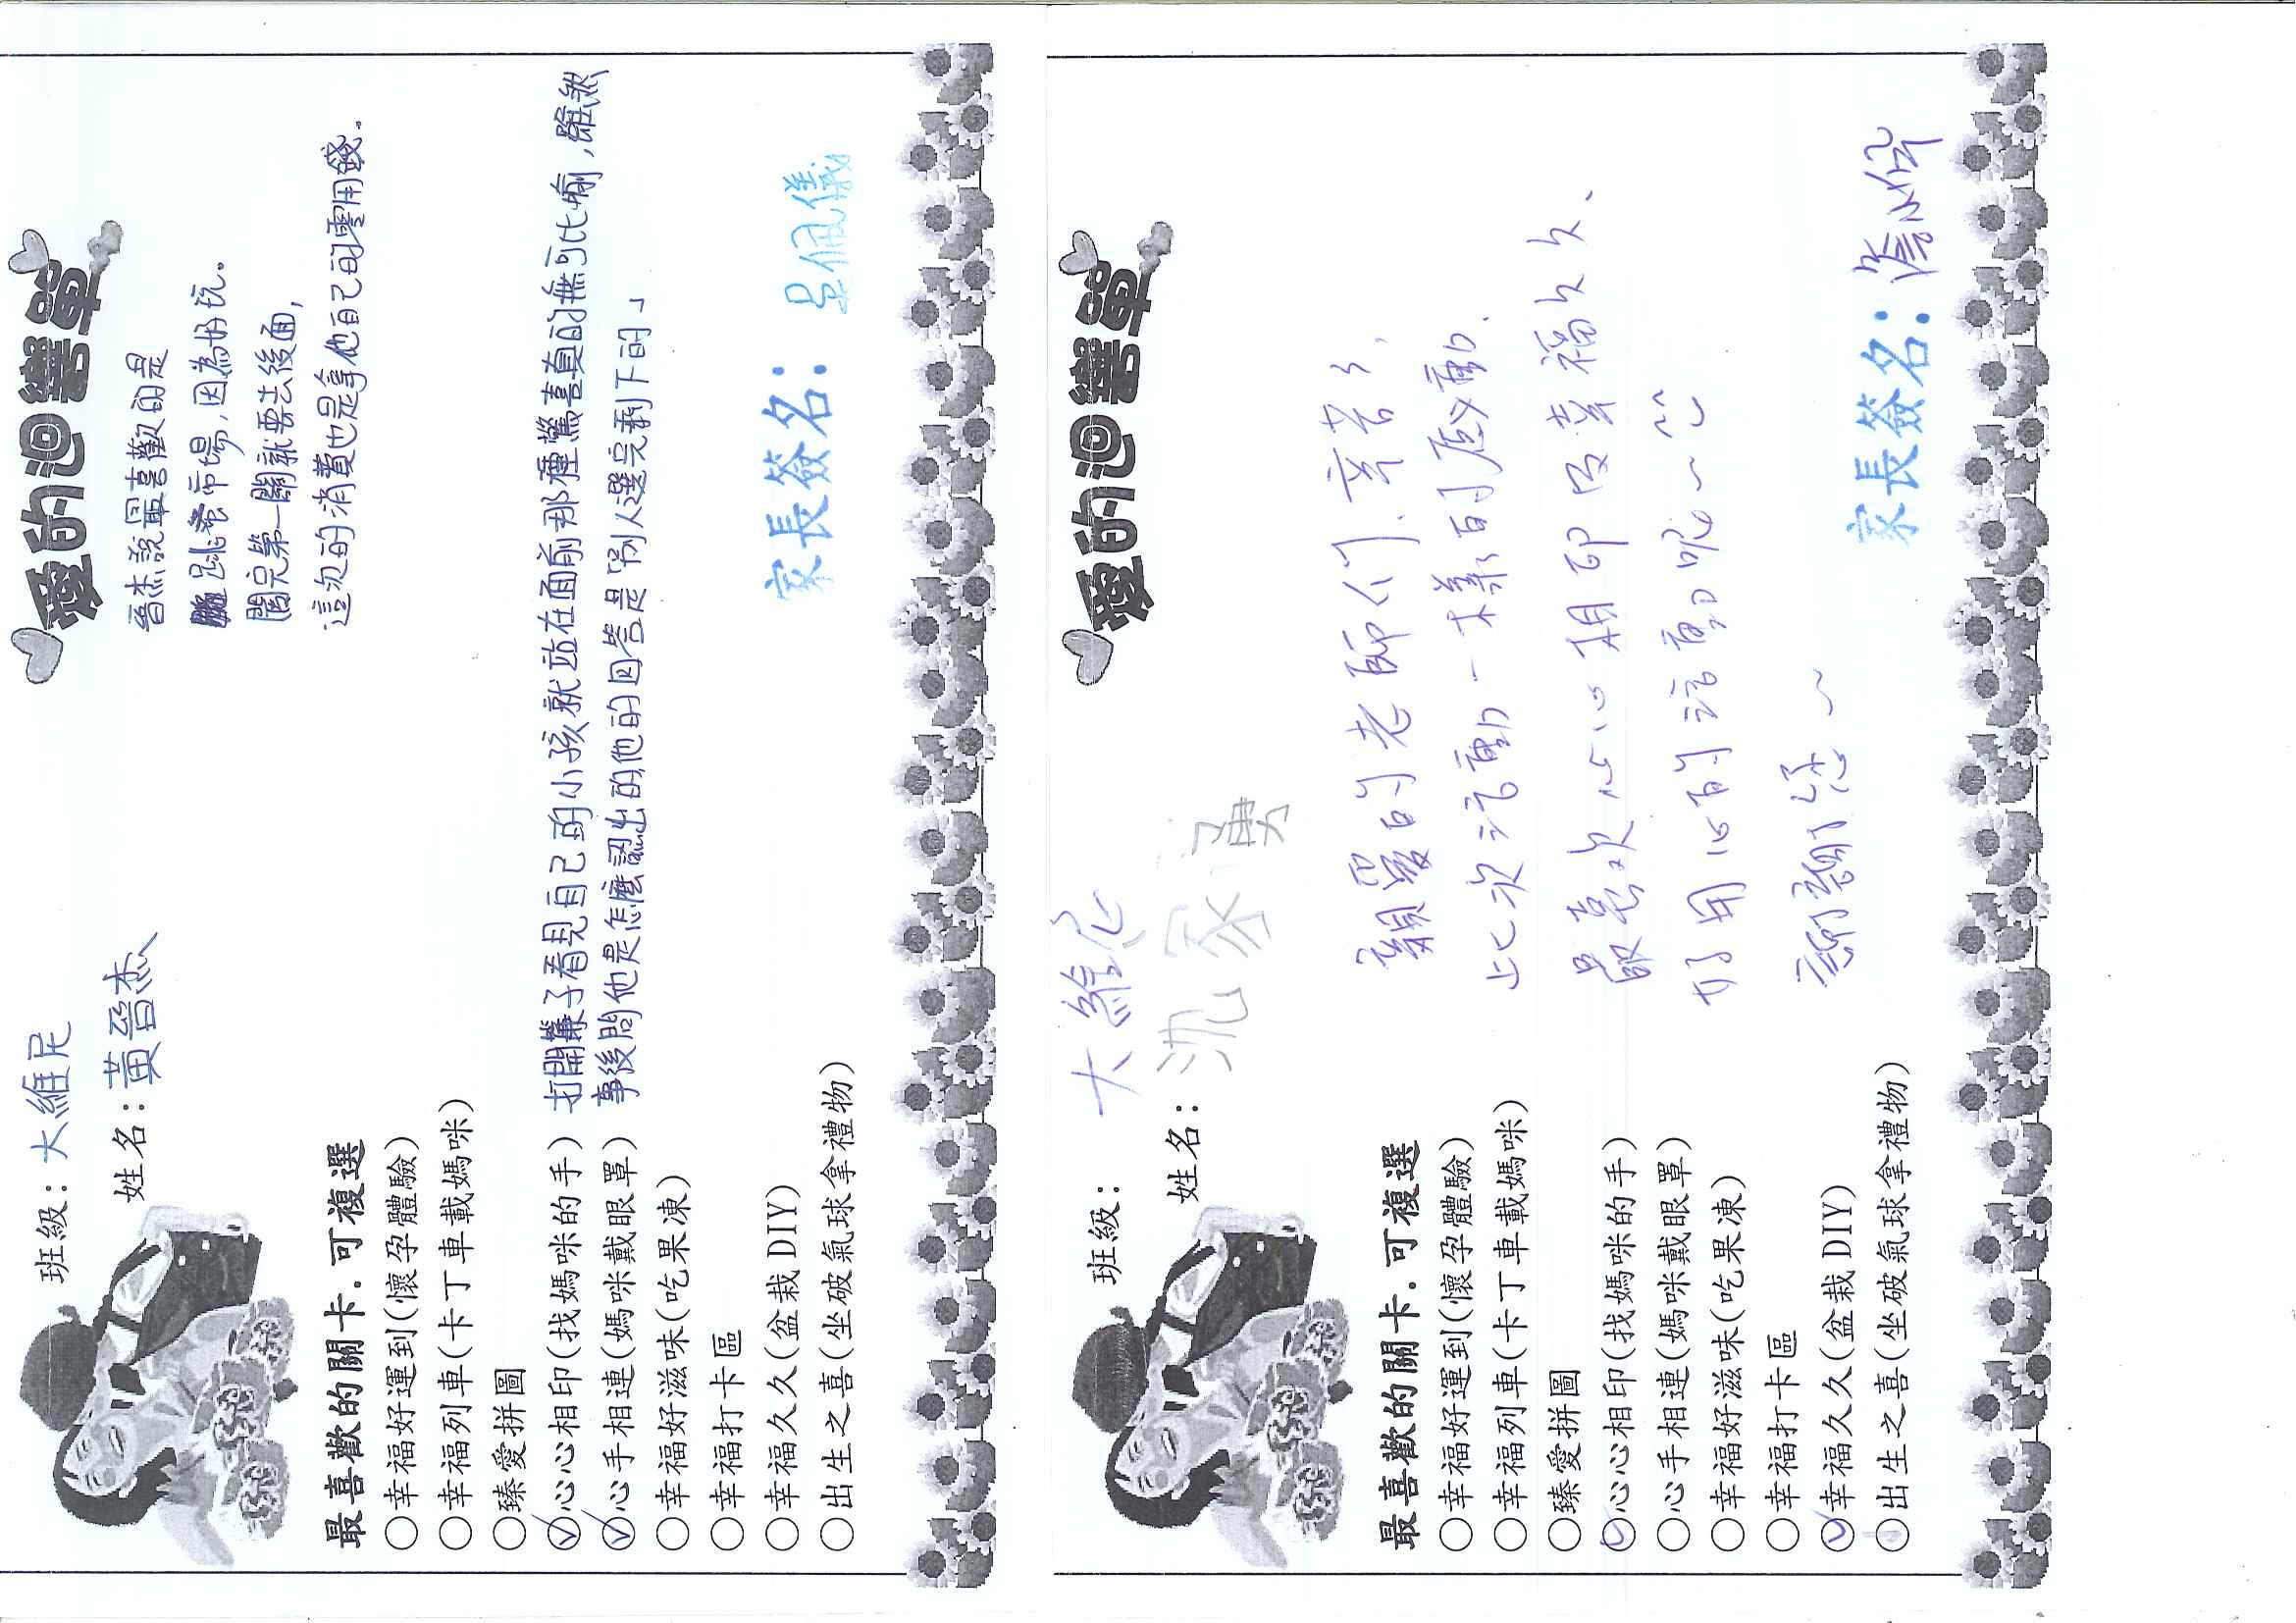 愛的迴響單
班級：大維尼
姓名：黃晉杰
晉杰說最喜歡的是
跳蚤市場，因為好玩。
闖完第一關就要去後面，
這次的消費也是拿他自己的零用錢。
最喜歡的關卡.可複選
○幸福好運到(懷孕體驗)
○幸福列車(卡丁車載媽咪)
○臻愛拼圖
✓心心相印(找媽咪的手) 打開簾子看見自己的小孩就站在面前那種驚喜真的無可比喻，雖然
✓心手相連(媽咪戴眼罩) 事後問他是怎麼認出的他的回答是「別人選完剩下的」
○幸福好滋味(吃果凍)
○幸福打卡區
○幸福久久(盆栽DIY)
○出生之喜(坐破氣球拿禮物)
家長簽名：吳佩儀
愛的迴響單
班級：大維尼
姓名：沈家
親愛的老師們.辛苦了.
此次活動一樣的感動.
最喜歡心心相印及幸福久久、
好用心的活動呢~
謝謝您~
最喜歡的關卡.可複選
○幸福好運到(懷孕體驗)
○幸福列車(卡丁車載媽咪)
○臻愛拼圖
✓心心相印(找媽咪的手)
○心手相連(媽咪戴眼罩)
○幸福好滋味(吃果凍)
○幸福打卡區
✓幸福久久(盆栽DIY)
○出生之喜(坐破氣球拿禮物)
家長簽名：